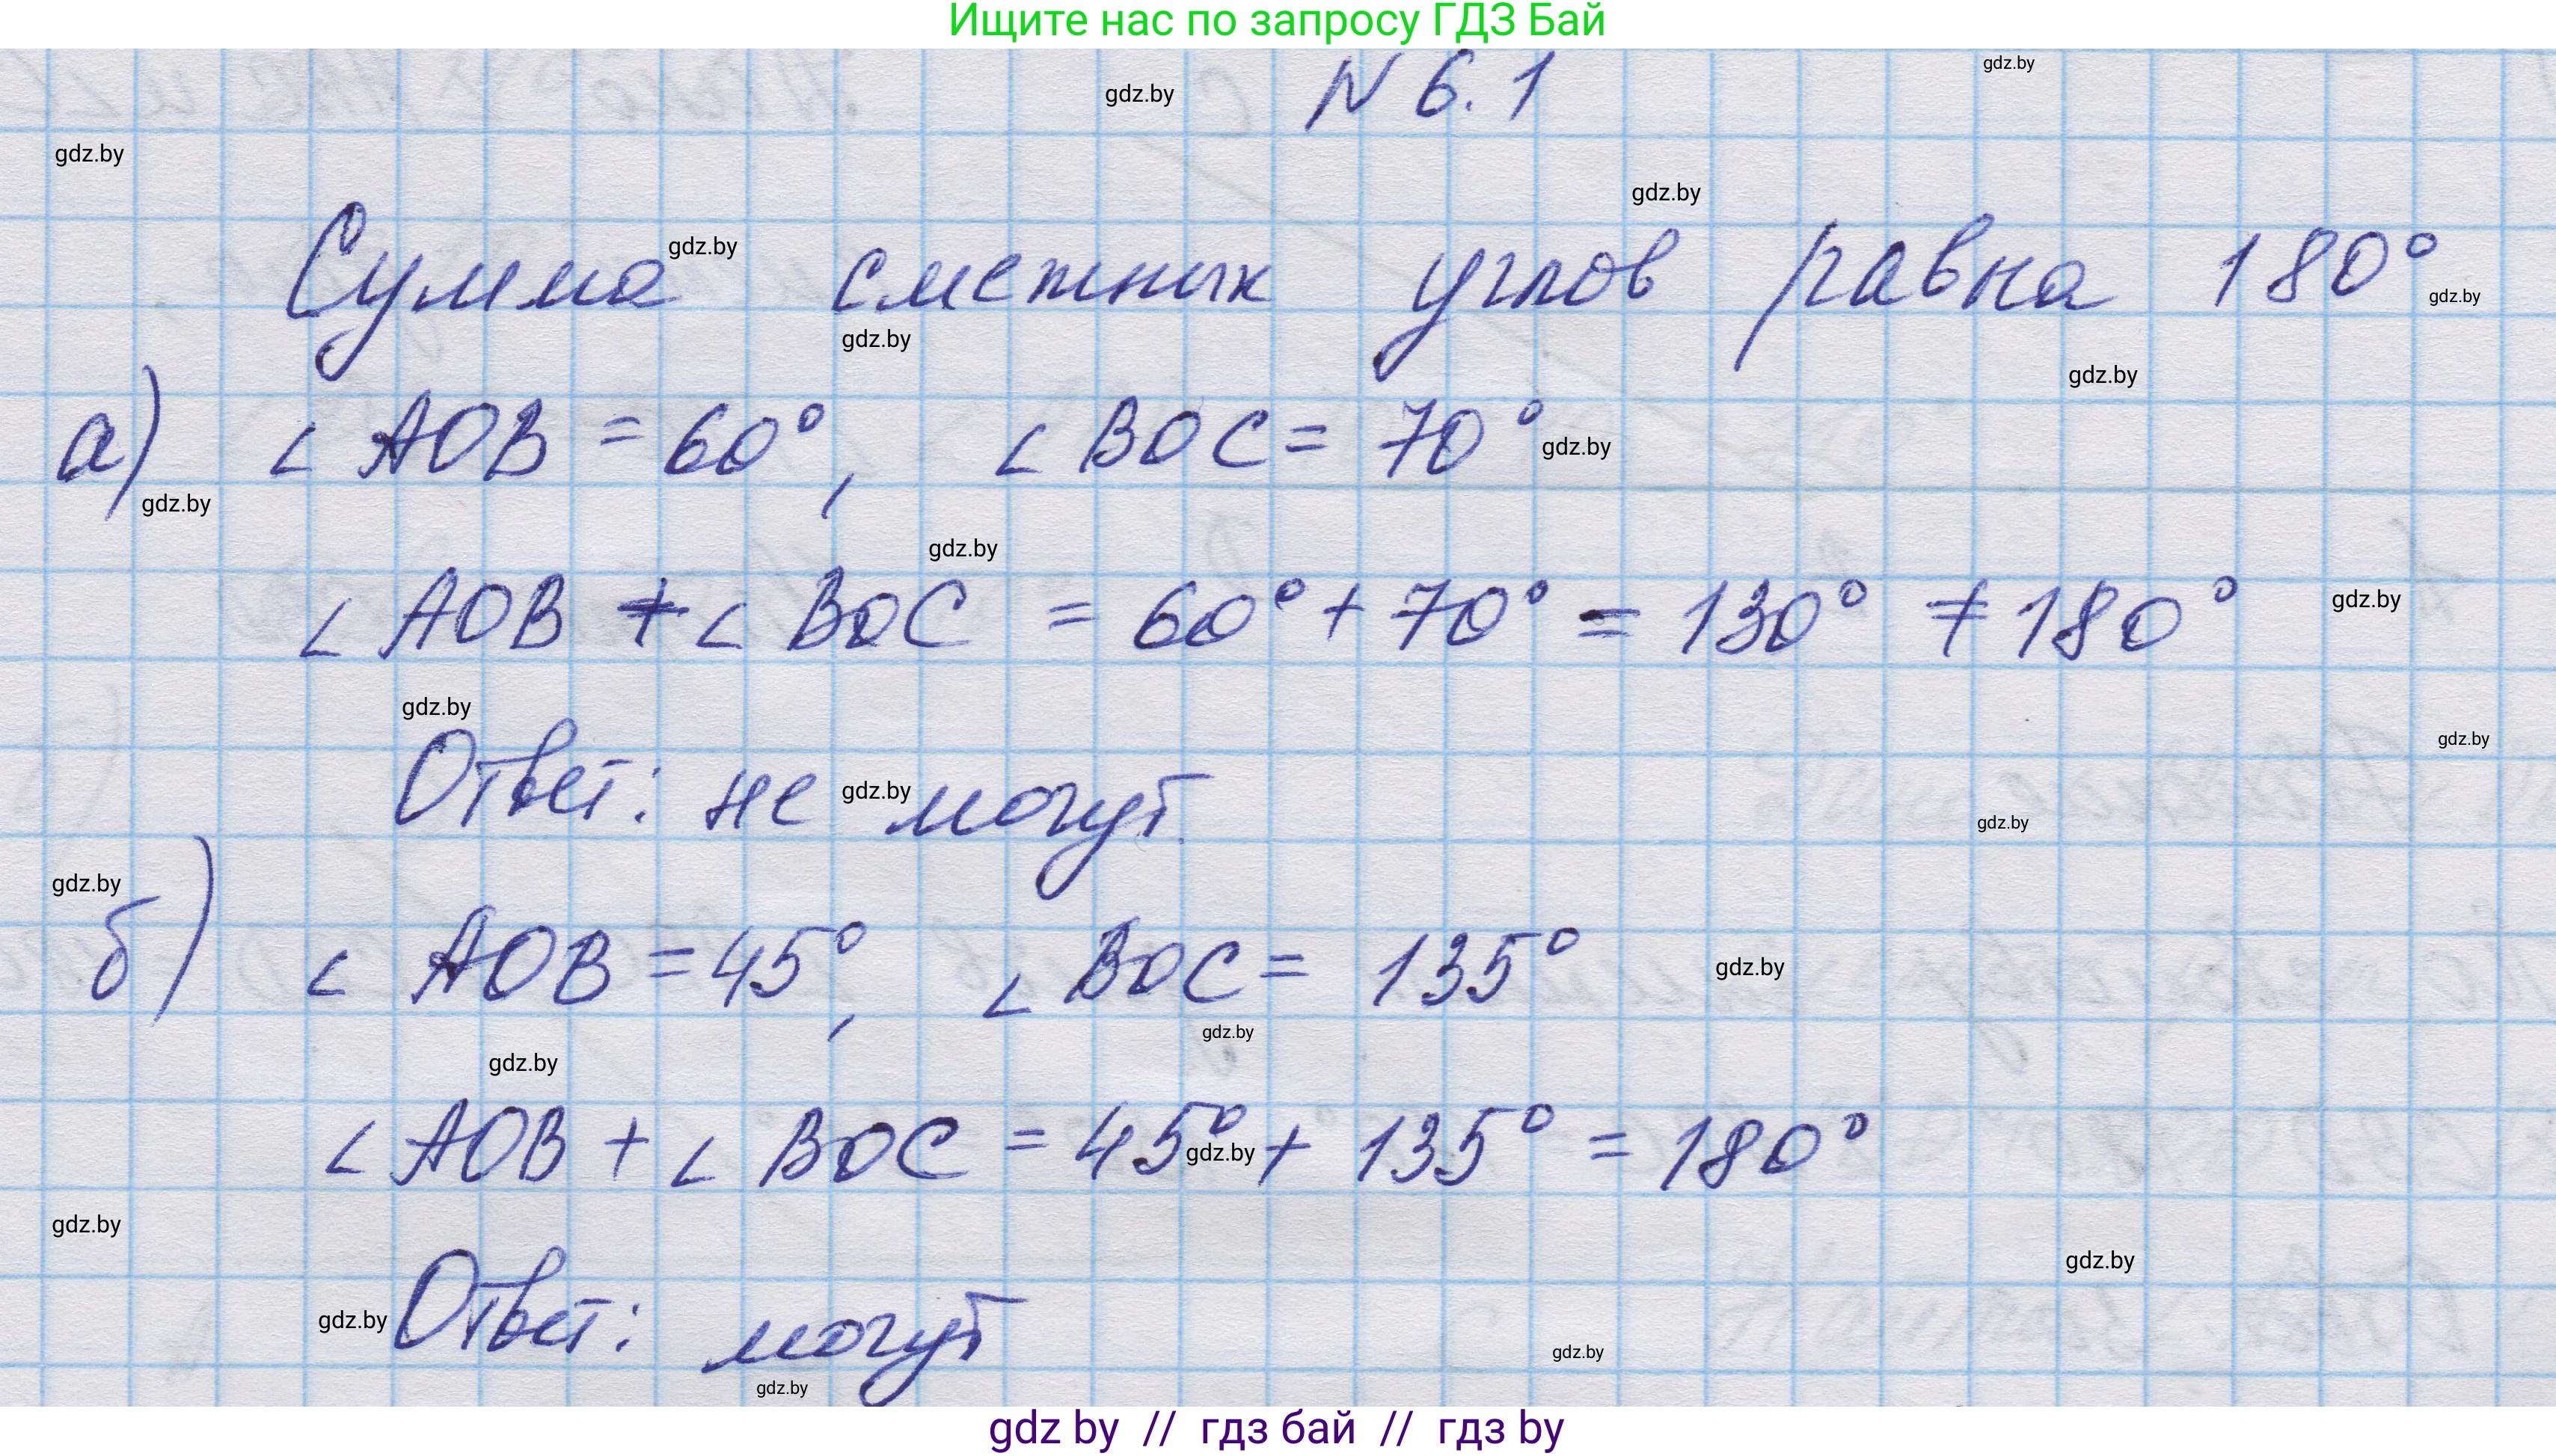 Ищите нас по запросу ГДЗ Бай
N 6.1
gdz.by
gdz.by
gdz.by
gdz.by
Сумма смежных углов равна 180°
gdz.by
gdz.by
gdz.by
gdz.by
а) ∠ AOB = 60°, ∠ BOC = 70°
gdz.by
gdz.by
gdz.by
∠ AOB + ∠ BOC = 60° + 70° = 130° ≠ 180°
gdz.by
gdz.by
gdz.by
Ответ: не могут.
gdz.by
gdz.by
gdz.by
б) ∠ AOB = 45°, ∠ BOC = 135°
gdz.by
gdz.by
gdz.by
∠ AOB + ∠ BOC = 45° + 135° = 180°
gdz.by
gdz.by
gdz.by
Ответ: могут
gdz.by
gdz.by
gdz.by
gdz by // гдз бай // гдз by